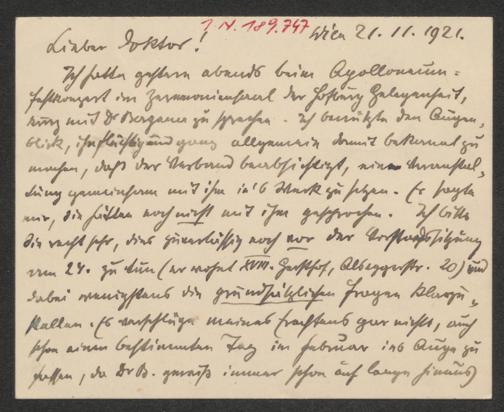 I.N. 189.747
Wien 21. 11. 1921.
Lieber Doktor!
Ich hatte gestern abends beim Apolloneum-
festkonzert im Zeremoniensaal der Hofburg Gelegenheit,
kurz mit Dr Bergauer zu sprechen. Ich benützte den Augen-
blick, ihn flüchtig und ganz allgemein damit bekannt zu
machen, daß der Verband beabsichtigt, eine Veranstal-
tung gemeinsam mit ihm in's Werk zu setzen. Er sagte
mir, Sie hätten noch nicht mit ihm gesprochen. Ich bitte
Sie recht sehr, dies zuverlässig noch vor der Vorstandssitzung
vom 24. zu tun (er wohnt XVIII. Gersthof, Alseggerstr. 20) und
dabei wenigstens die grundsätzlichen Fragen klarzu-
stellen. Es verschlüge meines Erachtens gar nicht, auch
schon einen bestimmten Tag im Februar ins Auge zu
fassen, da Dr B. gewiß immer schon auf lange hinaus